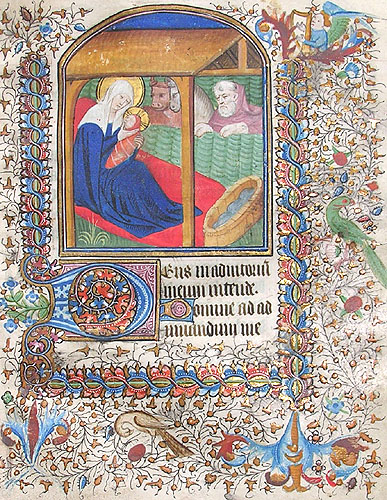 Deus in adiutoriū
meum intende
Domine ad ad
iuuandum me